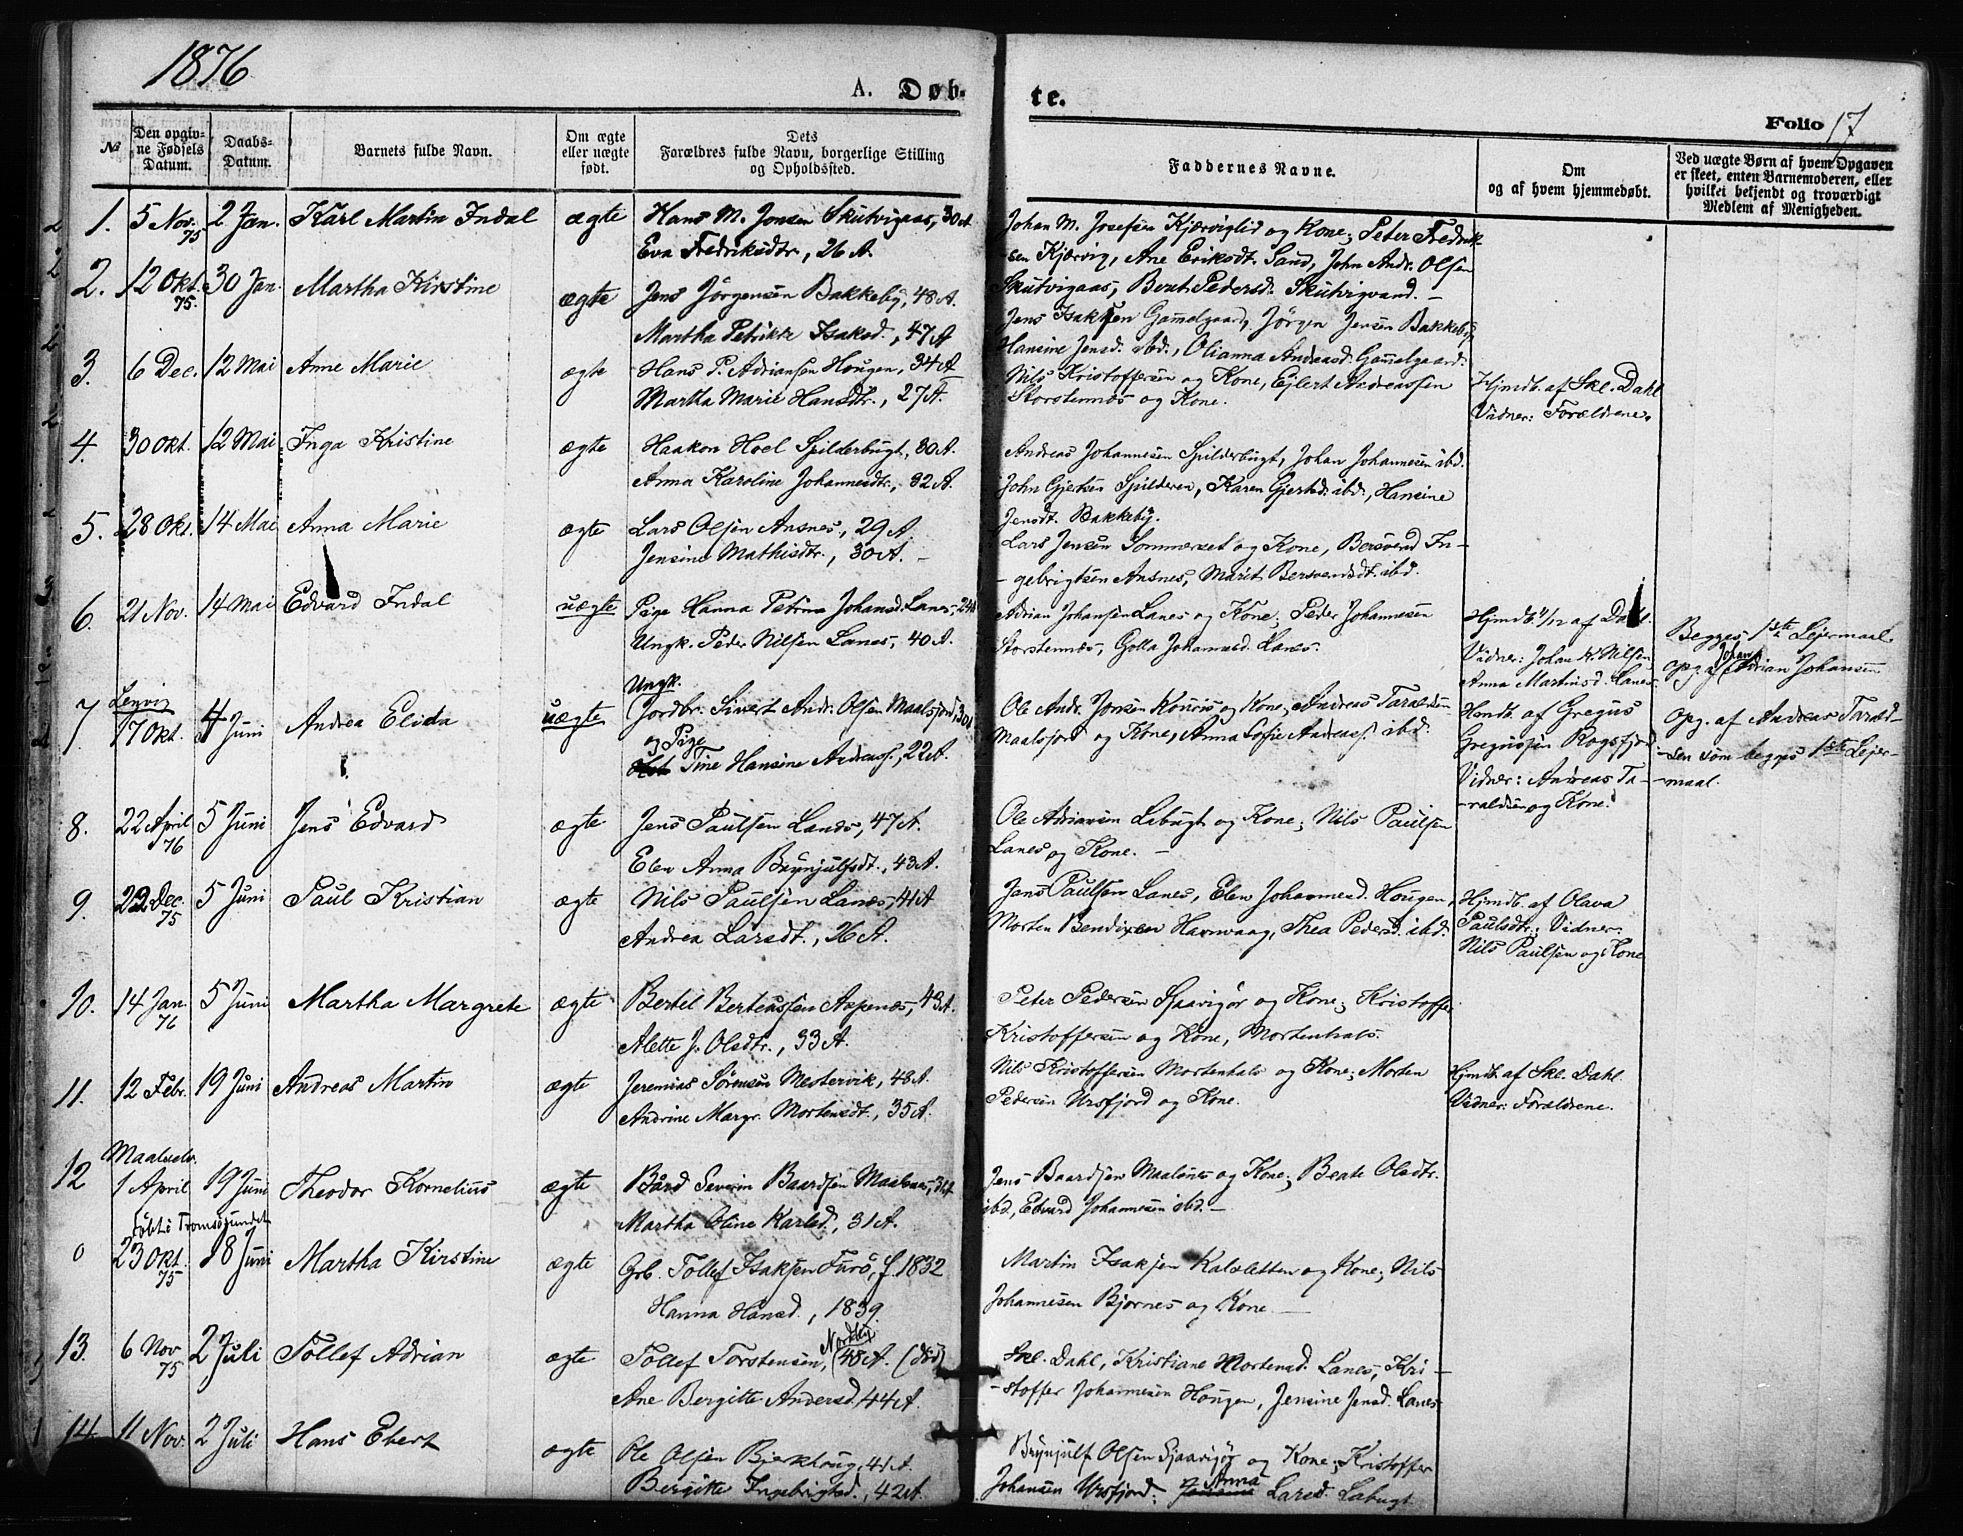 1876
A. Døb-
te.
Folio 17
№
Den opgiv-
ne Fødsels
Datum.
Daabs-
Datum.
Barnets fulde Navn.
Om ægte
eller uægte
født.
Dets
Farældres fulde Navn, borgerlige Stilling
og Opholdssted.
Faddernes Navne.
Om
og af hvem hjemmedøbt.
Ved uægte Børn af hvem Opgaven
er skeet, enten Barnemoderen, eller
hvilket bekjendt og troværdigt
Medlem af Menigheden.
1. 5 Nov. 75 2 Jan. Karl Martin Indal ægte Hans M. Jonsen Skutvigaas, 30 A
Eva Fredriksdtr., 26 A.
Johan M. Josefsen Kjærviglid og Kone; Peter Fredrik-
-sen Kjærvig, Ane Eriksdt. Sand, John Andr. Olsen
Skutvigaas, Berit Pedersd. Skutvigvand. -
2. 12 Okt. 75. 30 Jan. Martha Kirstine ægte Jens Jørgensen Bakkeby, 48 A.
Martha Petrikke Isaksd., 47 A
Jens Isaksen Gammelgaard, Jørgen Jensen Bakkeby,
Hansine Jensd. ibd., Olianna Andreasd. Gammelgaard.
3. 6 Dec. 12 Mai Anne Marie ægte Hans P. Adriansen Hougen, 34 A
Martha Marie Hansdtr., 27 A.
Nils Kristoffersen og Kone, Ejlert Andreassen
Storstennæs og Kone.
Hjmdb. af Skl. Dahl
Vidner: Forældrene.
4. 30 Okt. 12 Mai Inga Kristine ægte Haakon Hoel Spilderbugt, 30 A.
Anna Karoline Johannesdtr., 32 A.
Andreas Johannesen Spilderbugt, Johan Johannesen ibd.
John Gjertsen Spilderen, Karen Gjertsd. ibd., Hansine
Jensdt. Bakkeby.
5. 28 Okt. 14 Mai Anna Marie ægte Lars Olsen Ansnes, 29 A.
Jensine Mathisdtr., 30 A. -
Lars Jensen Sommerset og Kone, Bersvend In-
-gebrigtsen Ansnes, Marit Bersvendsdt. ibd.
6. 21 Nov. 14 Mai Edvard Indal uægte Pige Hanna Petrina Johansd. Lanes, 24 A
Ungk. Peder Nilsen Lanes, 40 A.
Adrian Johansen Lanes og Kone; Peder Johannesen
Storstennæs, Golla Johannesd. Lanes.
Hjmdb. af Dahl.
Vidner: Johan H. Nilsen
Anna Martinsd. Lanes.
Begges 1ste Lejermaal.
opg. af Adrian Johansen
Lenvig
7. 17 Okt. 4 Juni Andrea Elida uægte Ungk.
Jordbr. Sivert Andr. Olsen Maalsfjord, 30 A
og Pige
Tine Hansine Andreasd., 22 A.
Ole Andr. Jonsen Kouris og Kone, Andreas Taraldsen
Maalsjord og Kone, Anna Sofie Andreasd. ibd.
Hmdb. af Gregus
Gregussen Rogsfjord
Vidner: Andreas Ta-
-raldsen og Kone.
opg. af Andreas Tarald-
-sen som begges 1ste Lejer-
-maal.
8. 22 April 76 5 Juni Jens Edvard ægte Jens Paulsen Lanes, 47 A.
Elen Anna Brynjulfsdt., 43 A.
Ole Adriansen Labugt og Kone; Nils Paulsen
Lanes og Kone. -
9. 22 Dec. 75 5 Juni Paul Kristian ægte Nils Paulsen Lanes, 41 A
Andrea Larsdt., 26 A.
Jens Paulsen Lanes, Elen Johannesd. Hougen,
Morten Bendixen Havnvaag, Thea Pedersd. ibd.
Hjmdb. af Olava
Paulsdtr.; Vidner:
Nils Paulsen og Kone
10. 14 Jan. 76 5 Juni Martha Margrete ægte Bertel Berteussen Aspenes, 43 A.
Alette J. Olsdtr., 33 A.
Peter Pedersen Sjaavigør og Kone; Kristoffer
Kristoffersen og Kone, Mortenhals.
11. 12 Febr. 19 Juni Andreas Martin ægte Jeremias Sørensen Mestervik, 48 A.
Andrine Margr. Mortensdt., 35 A.
Nils Kristoffersen Mortenhals og Kone; Morten
Pedersen Ursfjord og Kone.
Hjmdb. af Skl. Dahl.
Vidner: Forældrene.
Maalselv.
12 1 April 19 Juni Theodor Kornelius ægte Bård Severin Baardsen Maalsnes, 34
Martha Oline Karlsd., 31 A.
Jens Baardsen Maalsnes og Kone; Beate Olsdtr.
ibd., Edvard Johannesen ibd. -
Døbt i Tromsøsundet
0 23 Okt. 75 18 Juni Martha Kirstine ægte Grb. Tollef Isaksen Furö, f. 1832
Hanna Hansd., 1839.
Martin Isaksen Kalsletten og Kone; Nils
Johannesen Bjørnes og Kone -
13. 6 Nov 75 2 Juli Tollef Adrian ægte Tollef Torstensen, Nordby (48 A. (død)
Ane Bergitte Andersd. 44 A.
Skl. Dahl, Kristiane Mortensd. Lanes, Kri-
-stoffer Johannesen Hougen, Jensine Jensd. Lanes
14 11 Nov. 2 Juli Hans Ebert ægte Ole Olsen Bjerkhoug, 41 A.
Bergitte Ingebrigtsd., 42 A.
Brynjulf Olsen Sjaavigør og Kone, Kristoffer
Johansen Ursfjord; Anna Larsd. Labugt